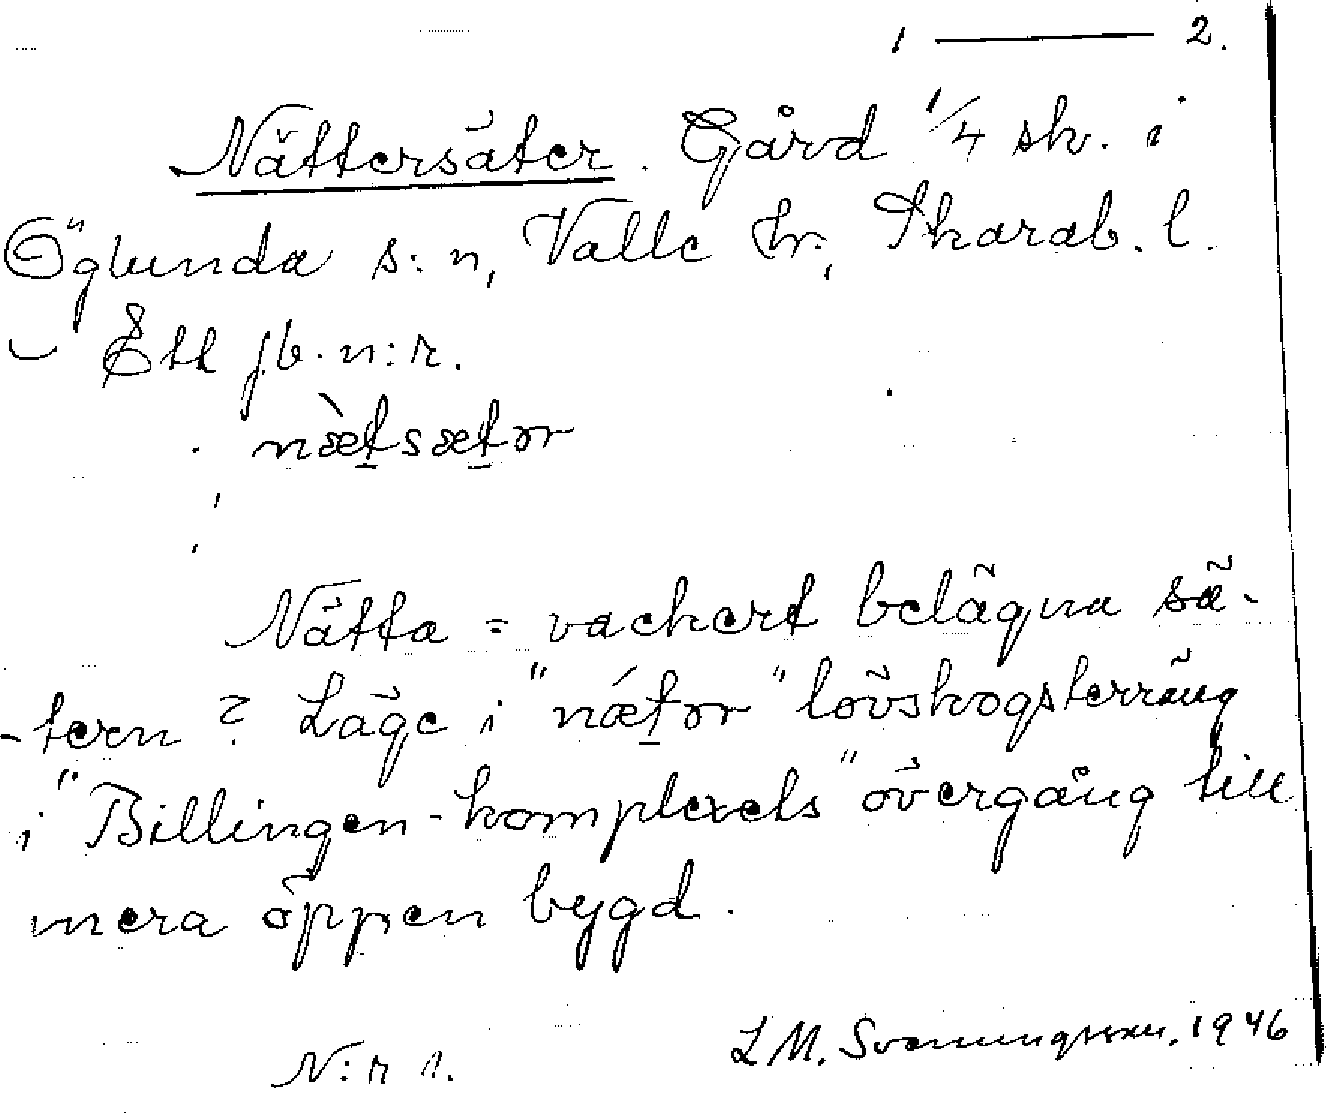 1 — 2.
Nättersäter. Gård 1/4 sk. i
Öglunda s:n, Valle hr, Skarab. l.
- Ett jb. n:r.
næ̀tsætər
Nätta = vackert belägna sä-
-tern? Läge i "nǽtər" lövskogsterräng
i "Billingen-komplexets" övergång till
mera öppen bygd.
N:r 1.
L M. Svenningsson. 1946